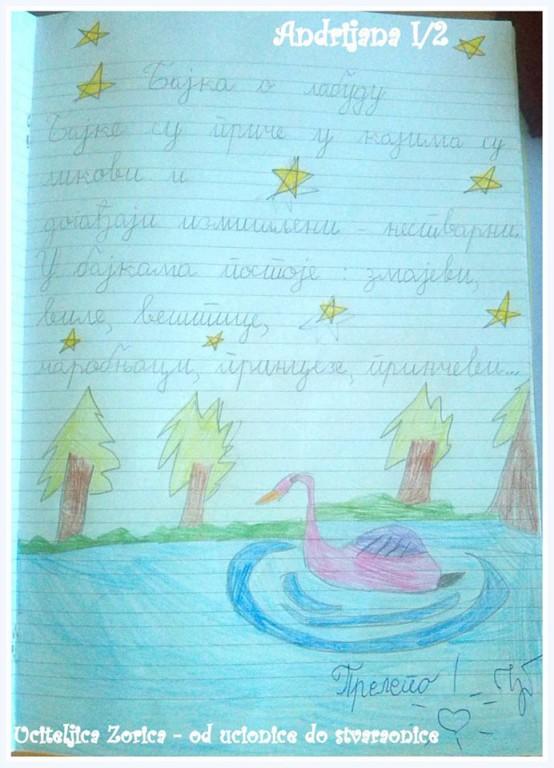 Andrijana I/2
Бајка о лабуду
Бајке су приче у којима су
ликови и
догађаји измишљени - нестварни.
У бајкама постоје : змајеви,
виле, вештице,
чаробњаци, принцезе, принчеви...
Прелепо !
Uciteljica Zorica - od ucionice do stvaraonice